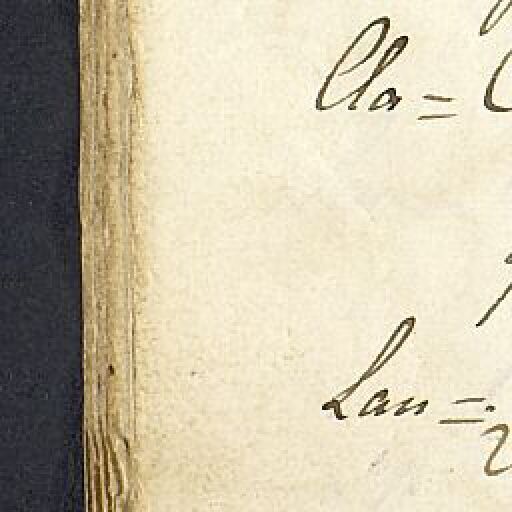 Cla =
Lau =